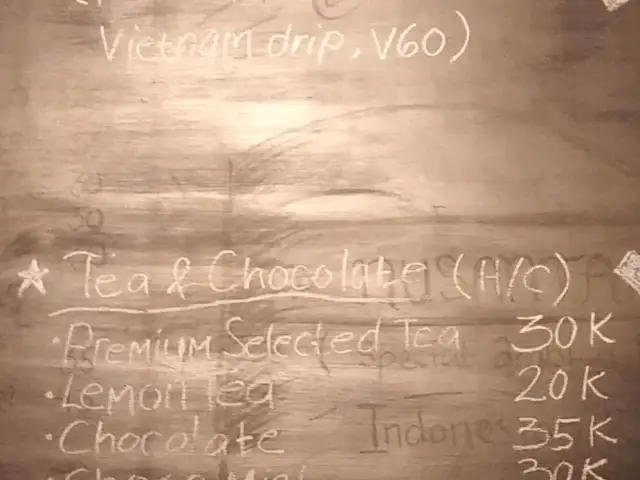 Vietnam drip, V60)
Tea & Chocolate (H/C)
· Premium Selected Tea 30K
· Lemon Tea 20K
· Chocolate 35K
30K